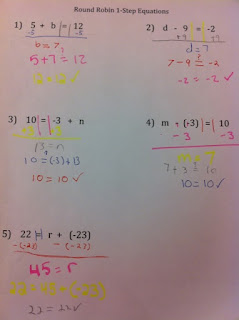 Round Robin 1-Step Equations
1) 5 + b = 12
-5 -5
b = 7
5+7 = 12
12 = 12 ✓
2) d - 9 = -2
+9 +9
d = 7
7-9 ≟ -2
-2 = -2 ✓
3) 10 = -3 + n
13 = n
10 = (-3)+13
10 = 10 ✓
4) m + (-3) = 10
-3 -3
m = 7
7+3 = 10
10 = 10 ✓
5) 22 = r + (-23)
-(-23) -(-23)
45 = r
22 = 45 + (-23)
22 = 22 ✓